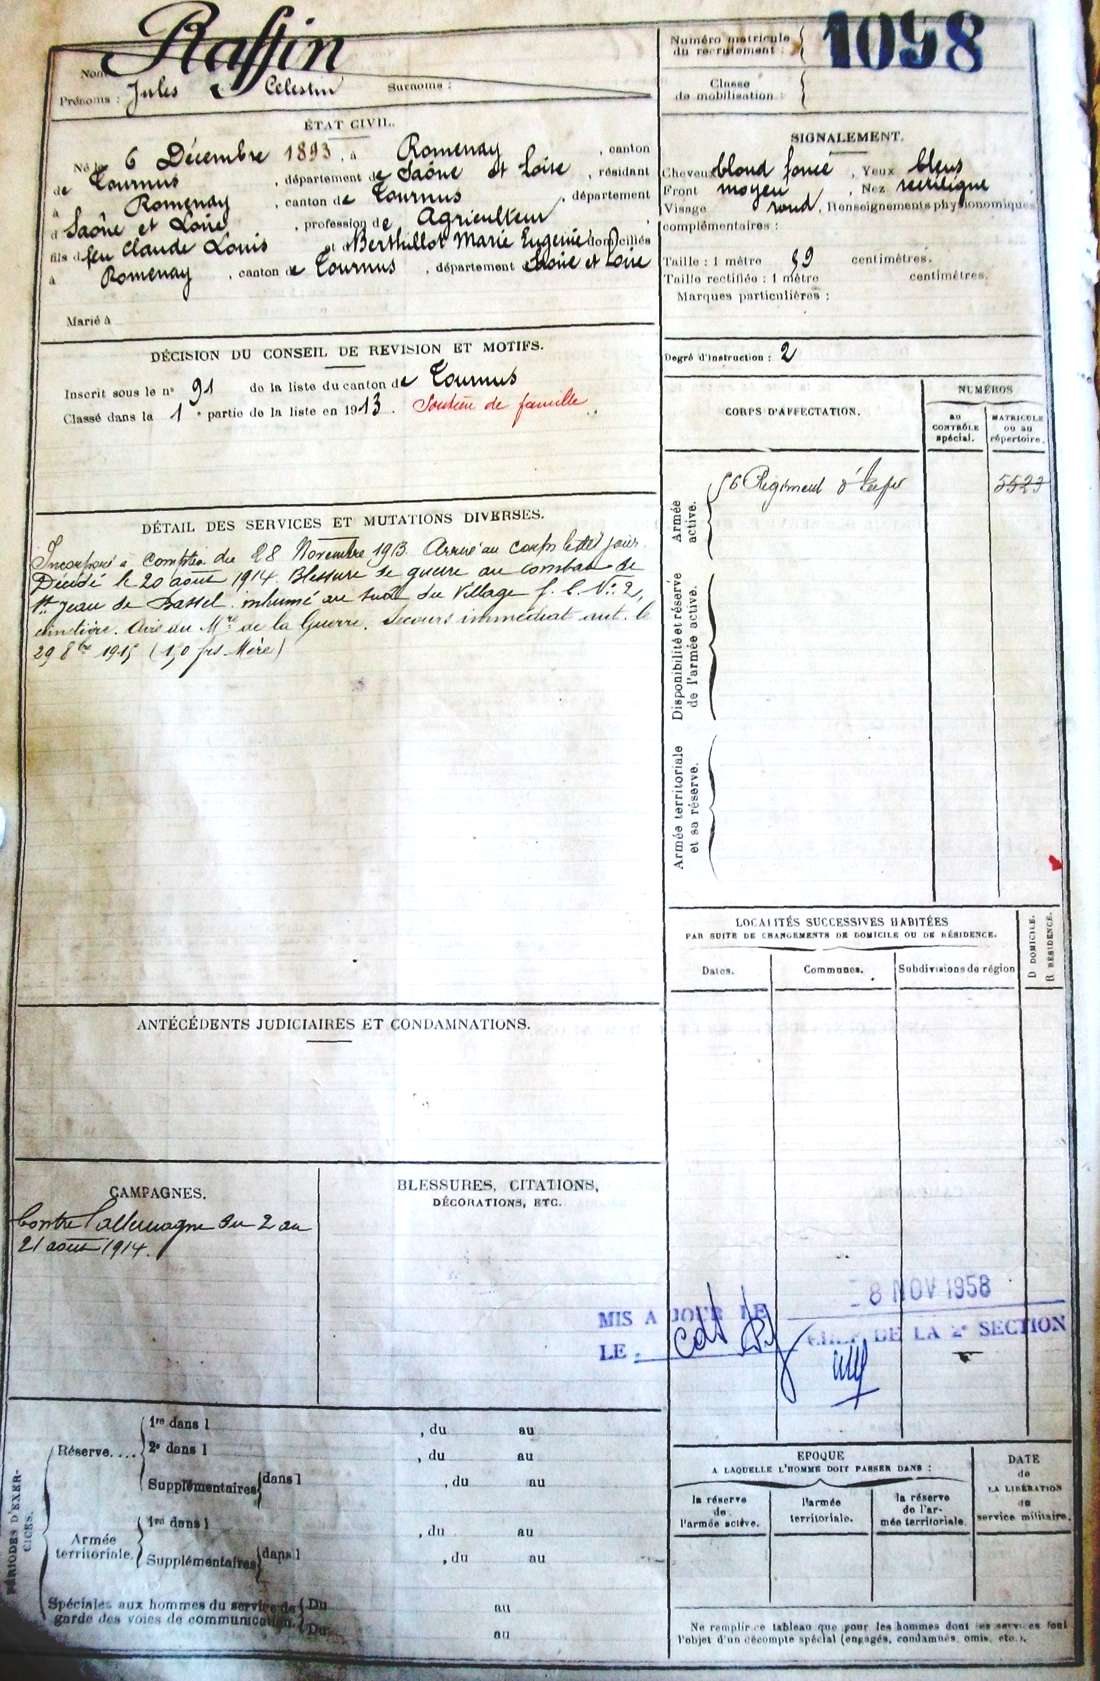 Raffin
Nom :
Prénoms : Jules Célestin Surnoms :
Numéro matricule
du recrutement : 1098
Classe
de mobilisation :
ÉTAT CIVIL.
Né le 6 Décembre 1893, à Romenay, canton
de Tournus, département de Saône et Loire, résidant
à Romenay, canton de Tournus, département
d Saône et Loire, profession de Agriculteur,
fils de feu Claude Louis et de Berthillot Marie Eugénie domiciliés
à Romenay, canton de Tournus, département Saône et Loire
Marié à
SIGNALEMENT.
Cheveux blond foncé, Yeux bleus
Front moyen, Nez rectiligne
Visage rond. Renseignements physionomiques
complémentaires :
Taille : 1 mètre 59 centimètres.
Taille rectifiée : 1 mètre centimètres.
Marques particulières :
Degré d'instruction : 2
DÉCISION DU CONSEIL DE REVISION ET MOTIFS.
Inscrit sous le n° 91 de la liste du canton de Tournus
Classé dans la 1e partie de la liste en 1913. Soutien de famille
CORPS D'AFFECTATION.
NUMÉROS
AU
CONTRÔLE
spécial.
MATRICULE
OU AU
répertoire.
Armée
active.
56 Régiment d'Infer
5523
Disponibilité et réserve
de l'armée active.
Armée territoriale
et sa réserve.
DÉTAIL DES SERVICES ET MUTATIONS DIVERSES.
Incorporé à compter du 28 Novembre 1913. Arrivé au corps le dit jour.
Décédé le 20 août 1914. Blessure de guerre au combat de
St Jean de Bassel. inhumé au sud du Village f. C. N° 2,
cimetière. Avis du Mre de la Guerre. Secours immédiat aut. le
29 8bre 1915 (150 frs Mère)
LOCALITÉS SUCCESSIVES HABITÉES
PAR SUITE DE CHANGEMENTS DE DOMICILE OU DE RÉSIDENCE.
Dates.
Communes.
Subdivisions de région
D DOMICILE.
R RÉSIDENCE.
ANTÉCÉDENTS JUDICIAIRES ET CONDAMNATIONS.
CAMPAGNES.
Contre l'allemagne du 2 au
21 août 1914.
BLESSURES, CITATIONS,
DÉCORATIONS, ETC.
MIS A JOUR LE 8 NOV 1958
LE CHEF DE LA 2e SECTION
PÉRIODES D'EXERCICES.
Réserve....
1re dans l , du au
2e dans l , du au
Supplémentaires dans l , du au
Armée
territoriale.
1re dans l , du au
Supplémentaires dans l , du au
Spéciales aux hommes du service de
garde des voies de communication.
Du au
Du au
EPOQUE
A LAQUELLE L'HOMME DOIT PASSER DANS :
la réserve
de
l'armée active.
l'armée
territoriale.
la réserve
de l'ar-
mée territoriale.
DATE
de
LA LIBÉRATION
du
service militaire.
Ne remplir ce tableau que pour les hommes dont les services font
l'objet d'un décompte spécial (engagés, condamnés, omis, etc.).